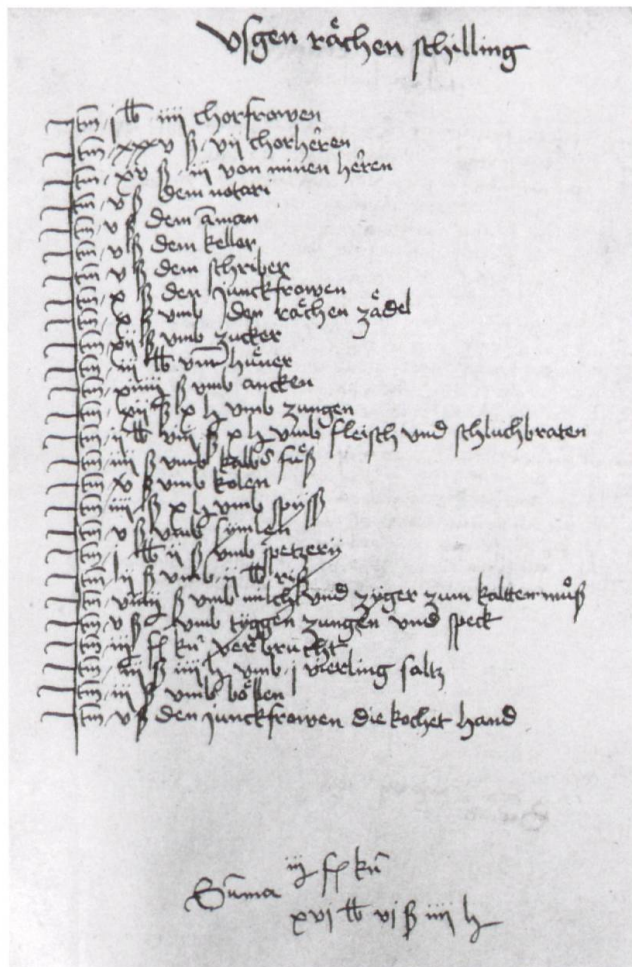 Vsgen rächen schilling
Itm j lb iiij chorfrowen
Itm xxv ß vij chorheren
Itm xv ß iij von minen heren
Itm v ß dem notari
Itm v ß dem aman
Itm v ß dem keller
Itm v ß dem schriber
Itm v ß den junckfrowen
Itm x ß vmb den rächen zädel
Itm x ß vmb zucker
Itm ij lb hüner
Itm xiiij ß vmb ancken
Itm xij ß x h vmb zungen
Itm ij lb vij ß x h vmb fleisch vnd schluchbraten
Itm iiij ß vmb kalbs füß
Itm v ß vmb kolen
Itm iiij ß x h vmb spyss
Itm v ß vmb symlen
Itm j lb ij ß vmb spetzery
Itm ij ß vmb ij lb riß
Itm ß vmb milch vnd zyger zum kaltten muß
Itm v ß vmb tyggen zungen vnd speck
Itm iij kn verbrucht
Itm iij ß iiij h vmb j vierling saltz
Itm iij ß vmb böllen
Itm v ß den junckfrowen die kochet hand
iij kn
Suma
xvi lb vi ß iiij h